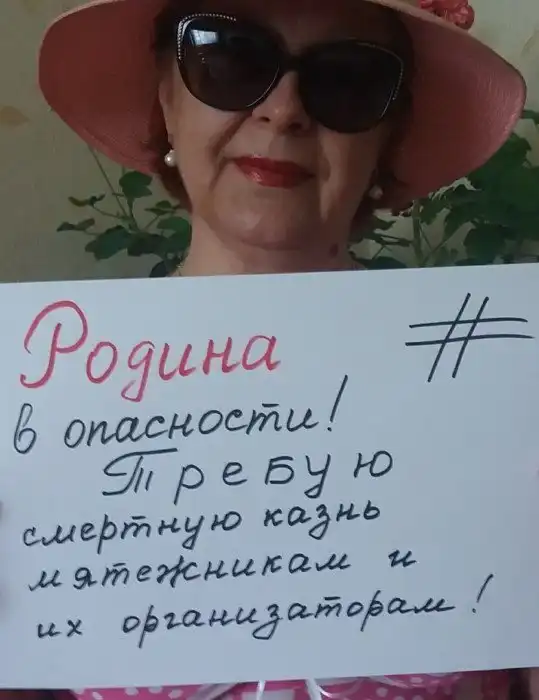 Родина #
в опасности!
Требую
смертную казнь
мятежникам и
их организаторам!